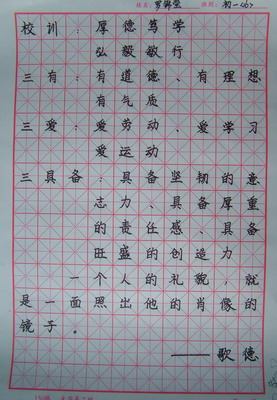 校训：厚德笃学
弘毅敏行
三有：有道德、有理想
有气质
三爱：爱劳动、爱学习
爱运动
三具备：具备坚韧的意
志力、具备厚重
的责任感、具备
旺盛的创造力
一个人的礼貌，就
是一面照出他的肖像的
镜子。
——歌德